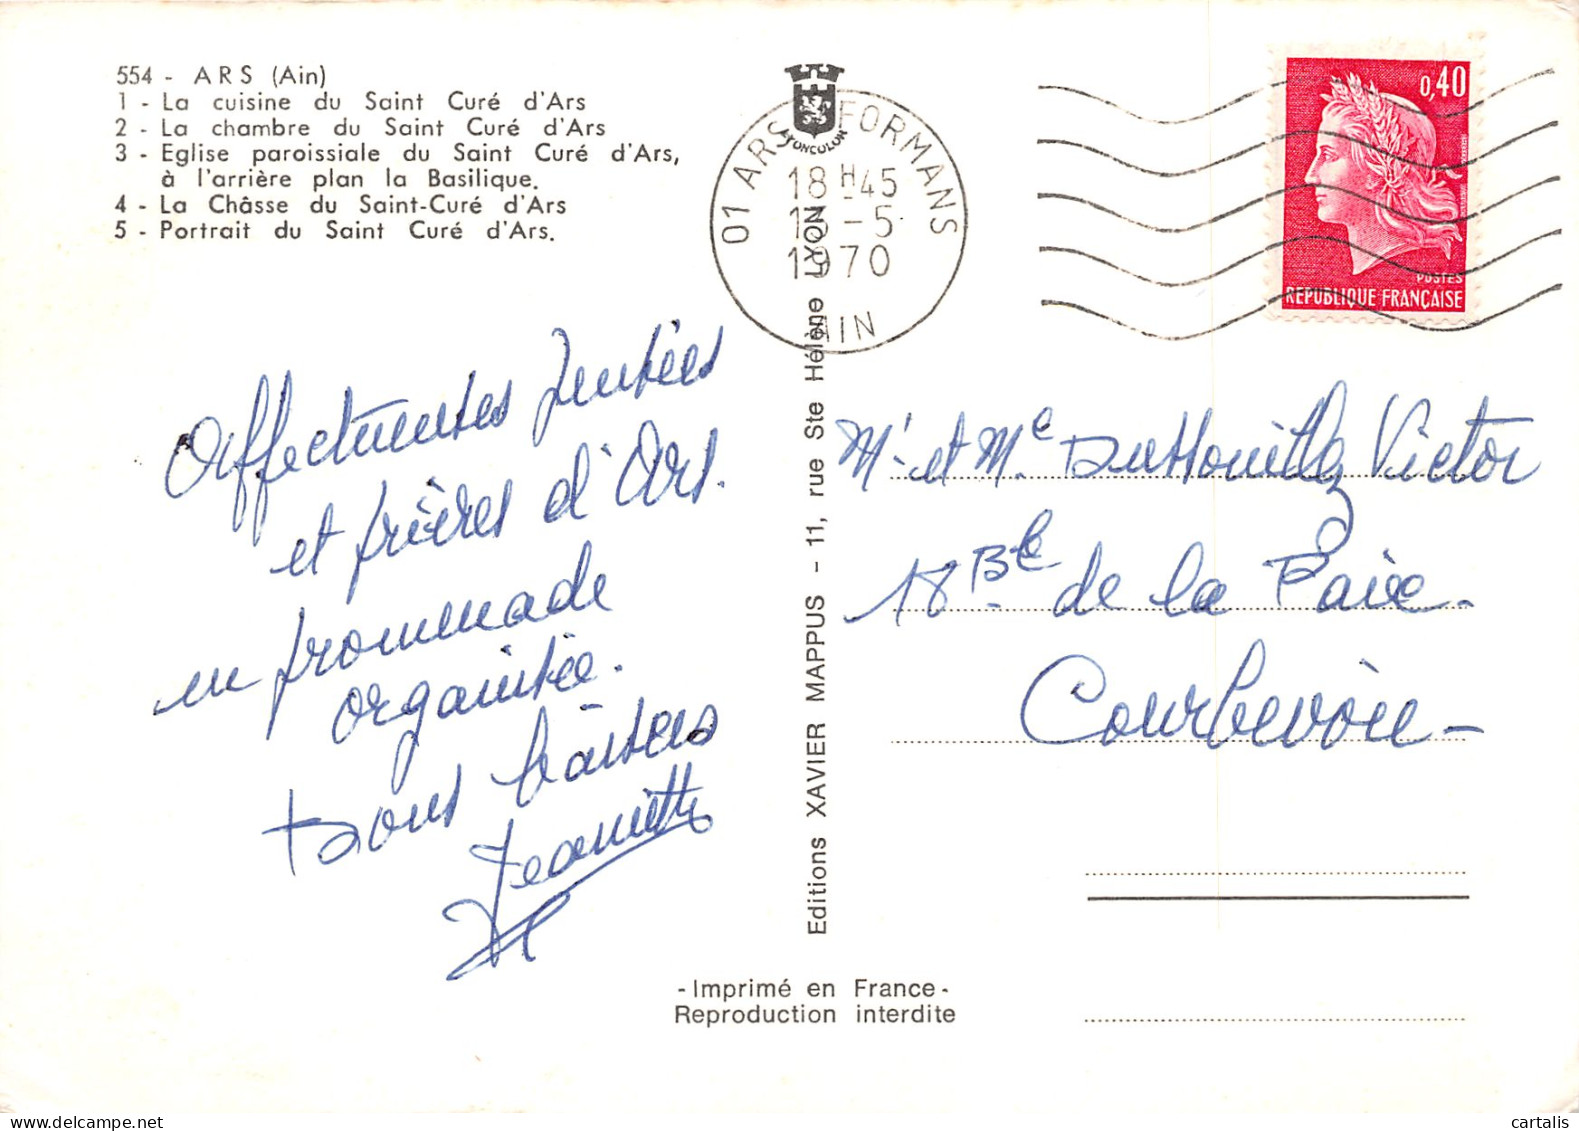 554 - ARS (Ain)
1 - La cuisine du Saint Curé d'Ars
2 - La chambre du Saint Curé d'Ars
3 - Eglise paroissiale du Saint Curé d'Ars,
à l'arrière plan la Basilique.
4 - La Châsse du Saint-Curé d'Ars
5 - Portrait du Saint Curé d'Ars.
01 ARS FORMANS
18 H 45
-5
1970
AIN
0,40
POSTES
REPUBLIQUE FRANÇAISE
Affectueuses pensées
et prières d'Ars.
en promenade
organisée.
Bons baisers
Jeannette
Editions XAVIER MAPPUS - 11, rue Ste Hélène LYON
Mr et Me Victor
18 Bd de la Paix
Courbevoie
- Imprimé en France -
Reproduction interdite
cartalis